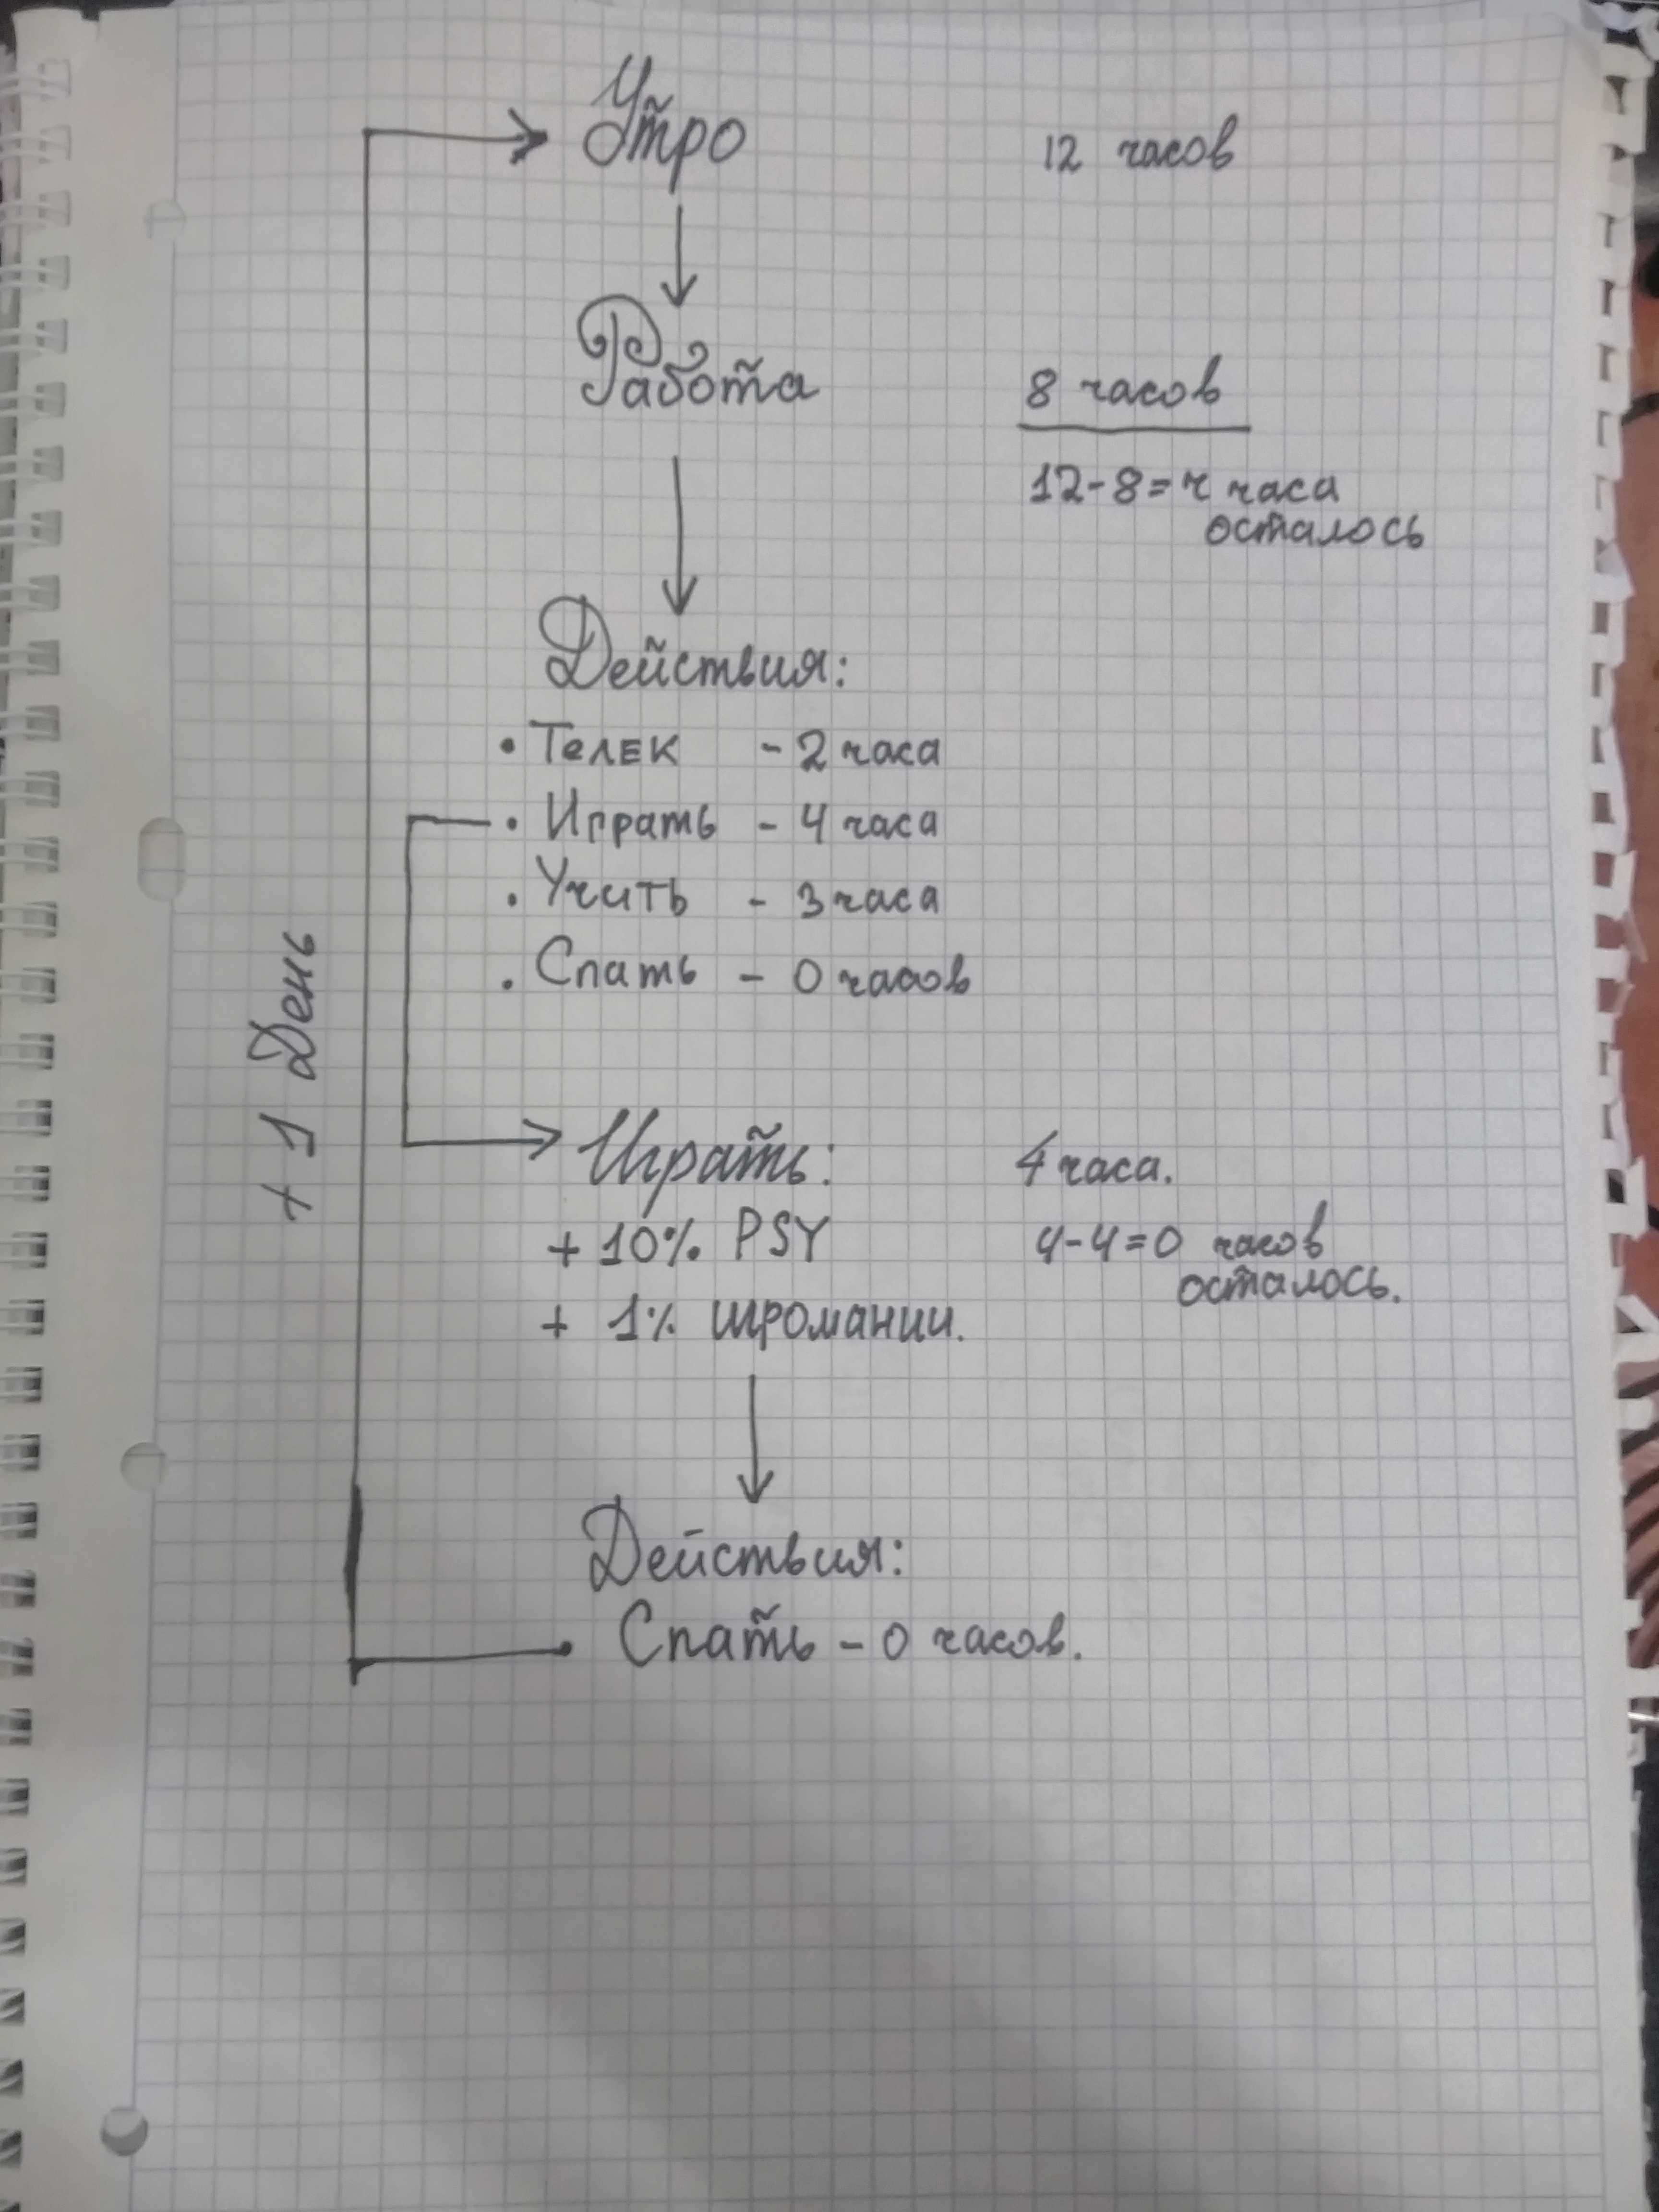 Утро 12 часов
Работа 8 часов
12-8=4 часа
осталось
Действия:
• Телек - 2 часа
• Играть - 4 часа
• Учить - 3 часа
• Спать - 0 часов
+ 1 День
Играть: 4 часа.
+ 10% PSY 4-4=0 часов
осталось.
+ 1% игромании.
Действия:
• Спать - 0 часов.